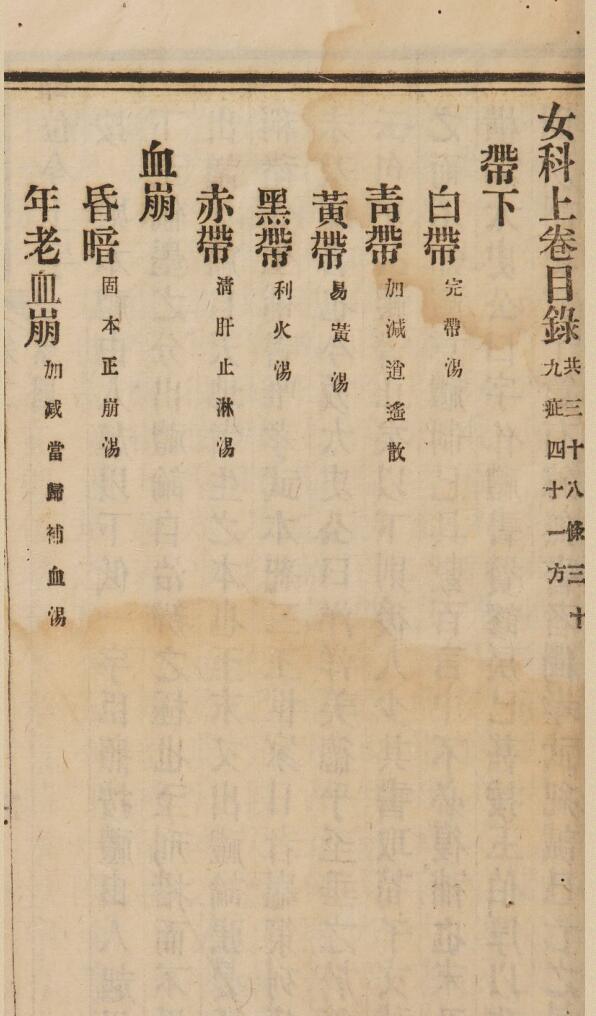 女科上卷目錄 共三十八條三十九症四十一方
帶下
白帶 完帶湯
青帶 加減逍遙散
黃帶 易黃湯
黑帶 利火湯
赤帶 清肝止淋湯
血崩
昏暗 固本正崩湯
年老血崩 加減當歸補血湯